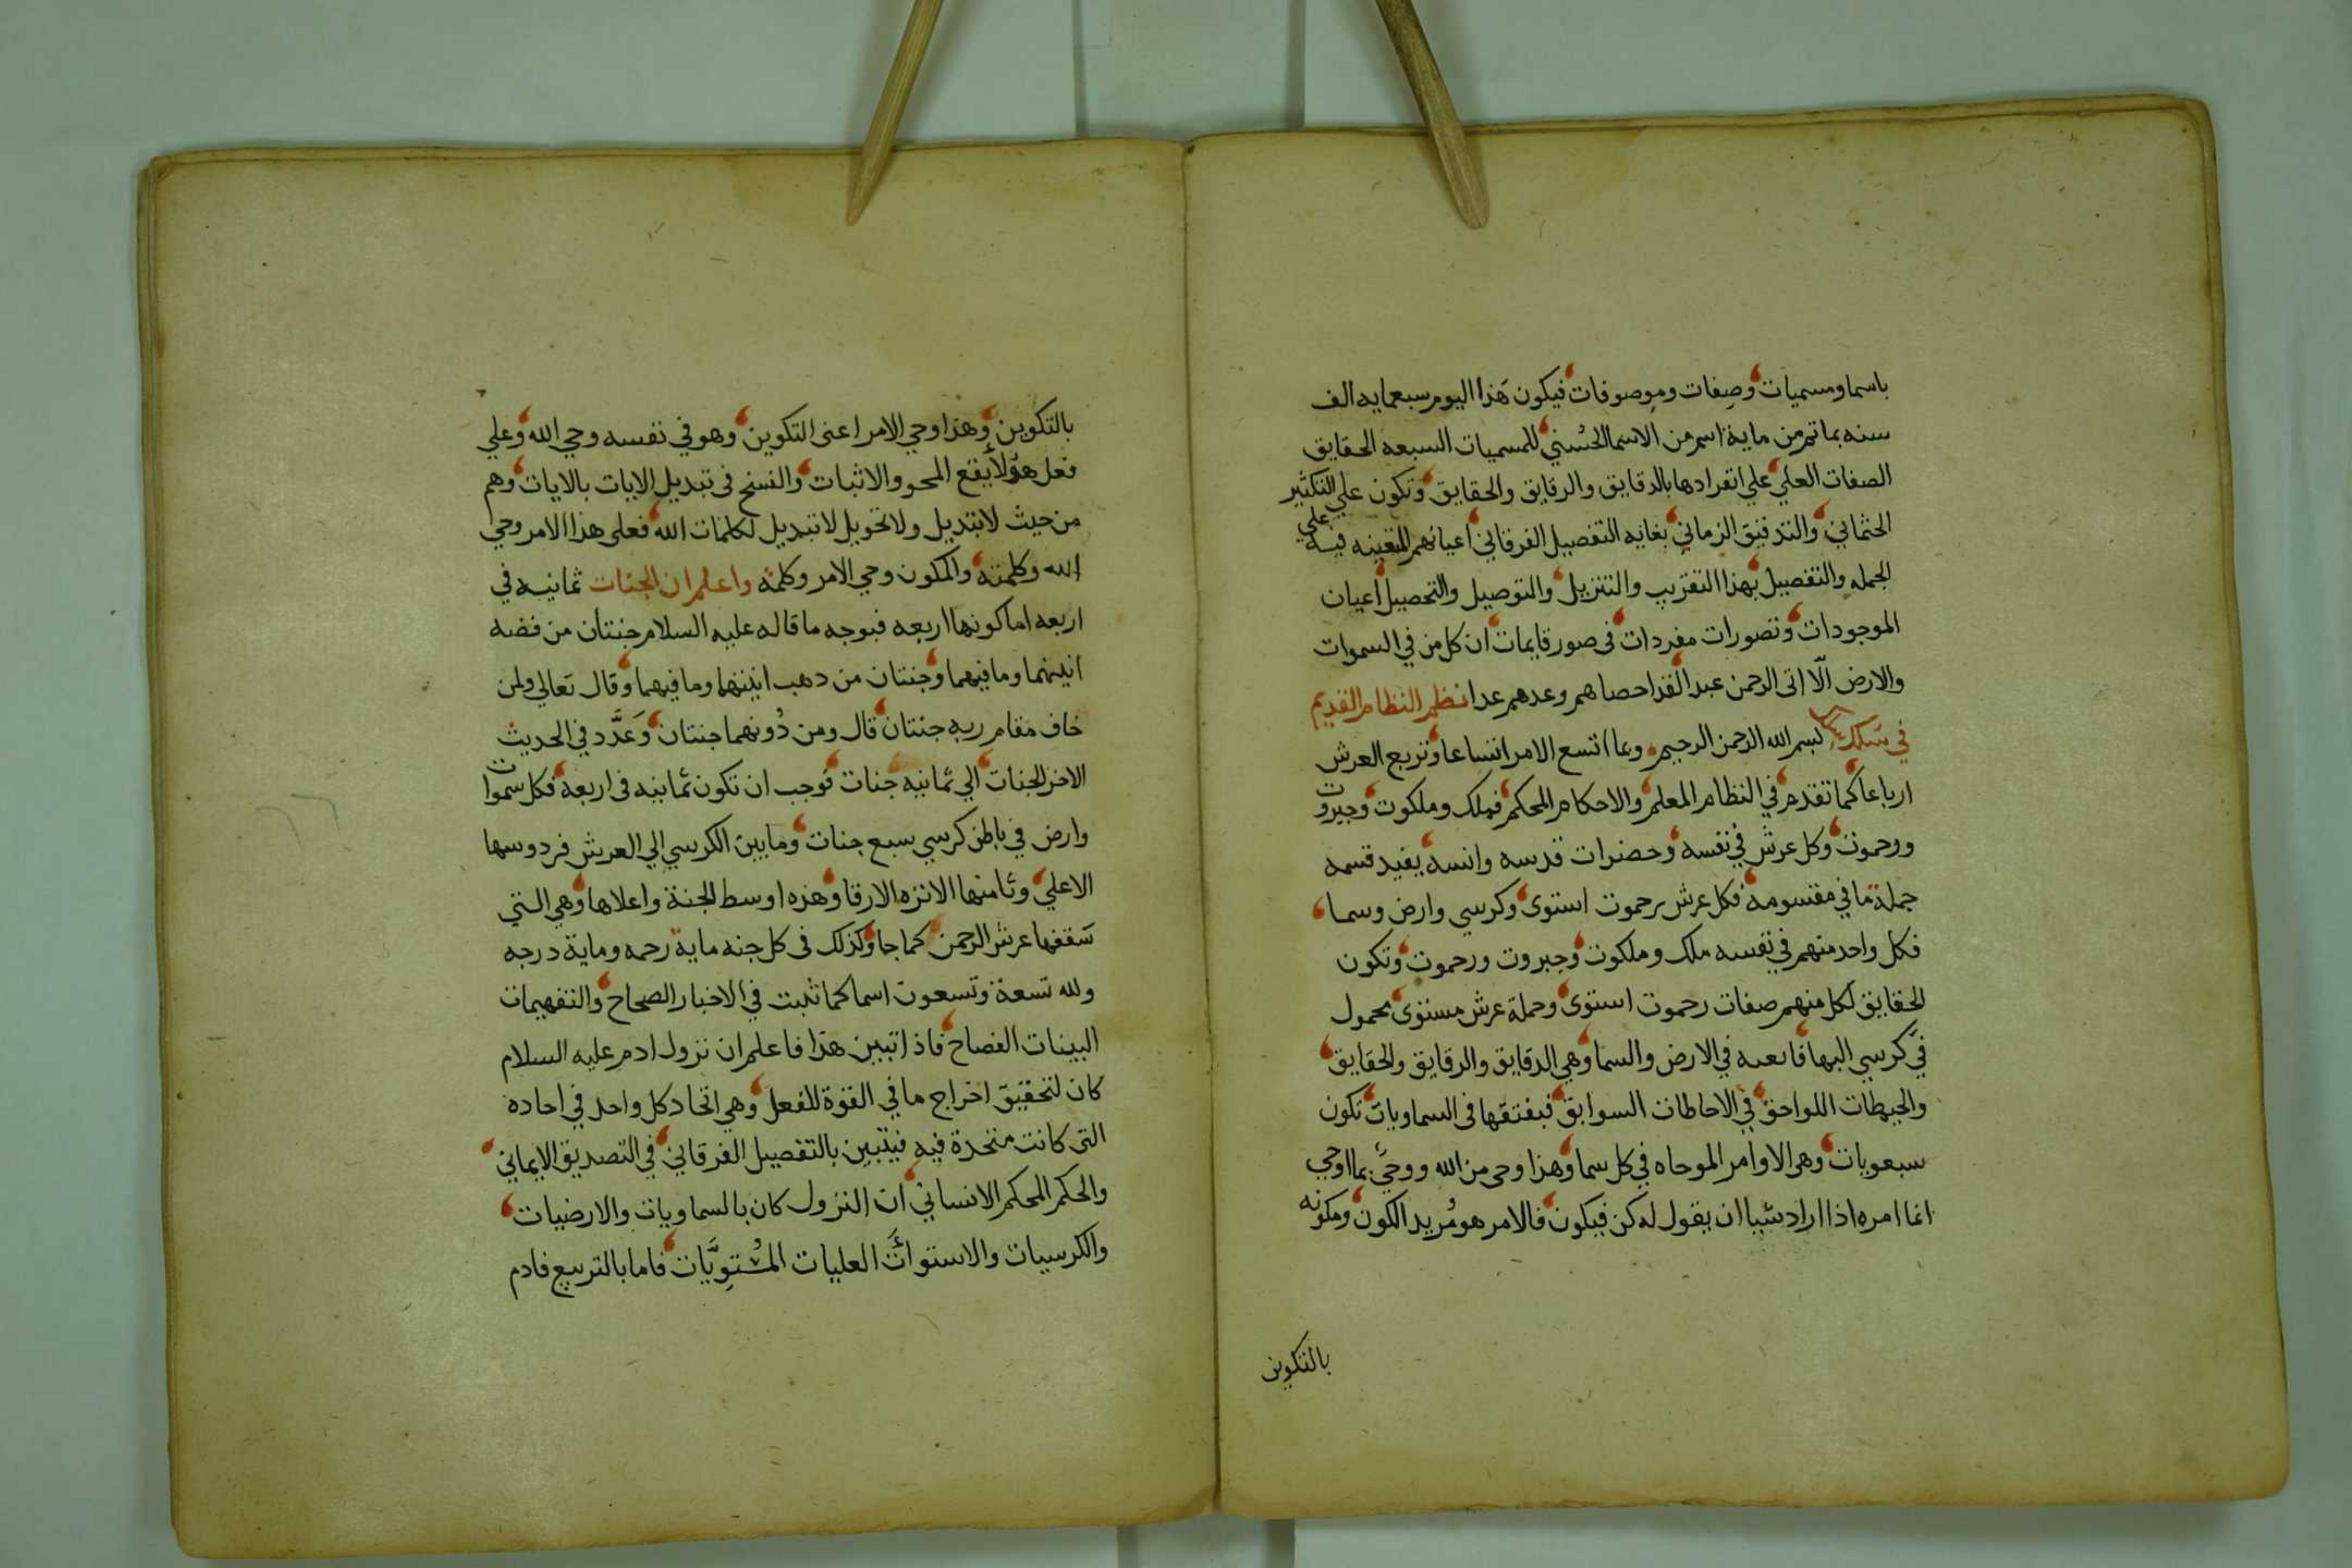 باسما ومسميات وصفات وموصوفات فيكون هذا اليوم سبعمايه الف
سنه بما تم من ماية اسم من الاسما الحسني للمسميات السبعه الحقايق
الصفات العلي علي انفرادها بالدقايق والرقايق والحقايق وتكون علي التكثير
الحثماني والتدقيق الزماني بغايه التفصيل الفرقاني اعيانهم المتعينه فيه علي
الجمله والتفصيل بهذا التقريب والتنزيل والتوصيل والتحصيل اعيان
الموجودات وتصورات مفردات في صور قايمات ان كل من في السموات
والارض الّا اتى الرحمن عبدا لقد احصاهم وعدهم عدا نظم النظام القديم
في سلك بسم الله الرحمن الرحيم وبما اتسع الامر اتساعا وتربع العرش
ارباعا كما تقدم في النظام المعلم والاحكام المحكم فملك وملكوت وجبروت
ورحموت وكل عرش في نفسه وحضرات قدسه وانسه يفيد قسمه
جملة ما في مقسومه فكل عرش برحموت استوى وكرسي وارض وسما
فكل واحد منهم في نفسه ملك وملكوت وجبروت ورحموت وتكون
الحقايق لكل منهم صفات رحموت استوى وحملة عرش مستوى محمول
في كرسي البها في الارض والسما وهي الدقايق والرقايق والحقايق
والحيطات اللواحق في الاحاطات السوابق فيفتقها في السماويات تكون
سبعويات وهي الاوامر الموحاه في كل سما وهذا وحي من الله ووحي بما اوحي
انما امره اذا اراد شيا ان يقول له كن فيكون فالامر هو مريد الكون ومكونه
بالتكوين
بالتكوين وهذا وحي الامر اعنى التكوين وهو في نفسه وحي الله وعلي
فعل هولا يقع المحو والاثبات والنسخ في تبديل الايات بالايات وهم
من حيث لا تبديل ولا تحويل لا تبديل لكلمات الله فعلى هذا الامر وحي
الله وكلمته والمكون وحي الامر وكلمه واعلم ان الجنات ثمانيه في
اربعه اما كونها اربعه فبوجه ما قاله عليه السلام جنتان من فضه
انيتهما وما فيهما وجنتان من دهب انيتهما وما فيهما وقال تعالي ولمن
خاف مقام ربه جنتان قال ومن دونهما جنتان وعدَّد في الحديث
الاخر الجنات الي ثمانيه جنات فوجب ان تكون ثمانيه في اربعة فكل سموات
وارض في باطن كرسي سبع جنات وما بين الكرسي الي العرش فردوسها
الاعلي وثامنها الانزه الارقا وهذه اوسط الجنة واعلاها وهي التي
سقفها عرش الرحمن كما جا وكذلك في كل جنه ماية رحمه وماية درجه
ولله تسعة وتسعون اسما كما ثبت في الاخبار الصحاح والتفهيمات
البينات الفصاح فاذا تبين هذا فاعلم ان نزول ادم عليه السلام
كان لتحقيق اخراج ما في القوة للفعل وهي اتحاد كل واحد في احاده
التي كانت متحدة فيه فيتبين بالتفصيل الفرقاني في التصديق الايماني
والحكم المحكم الانساني ان النزول كان بالسماويات والارضيات
والكرسيات والاستوات العليات المستويات فاما بالتربيع فادم